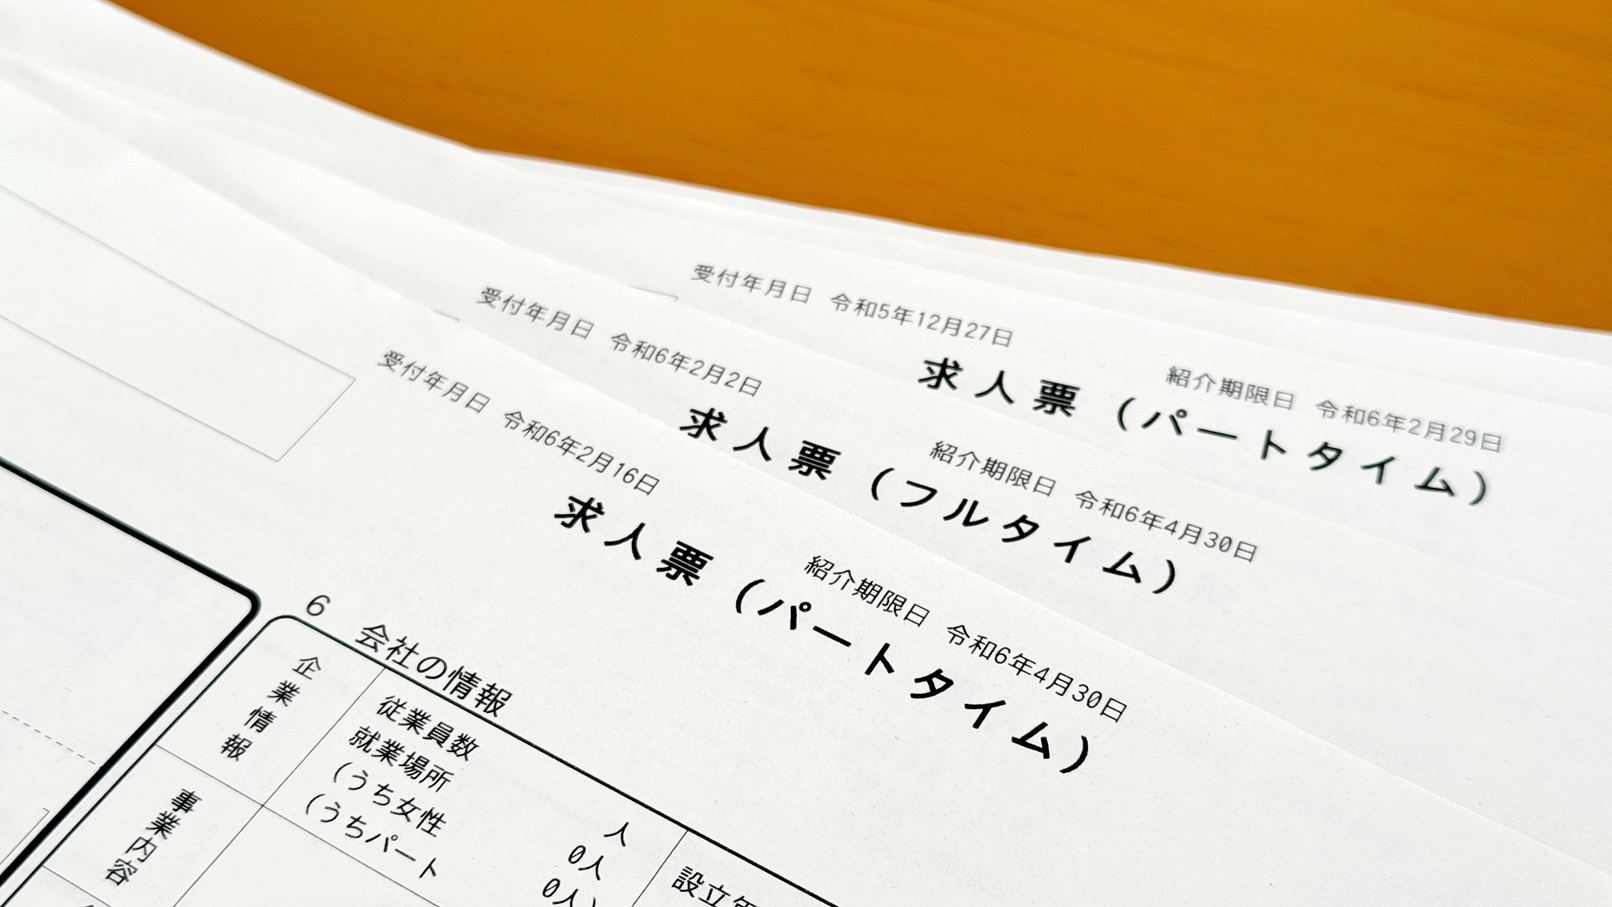 受付年月日 令和5年12月27日
紹介期限日 令和6年2月29日
求人票（パートタイム）
受付年月日 令和6年2月2日
紹介期限日 令和6年4月30日
求人票（フルタイム）
受付年月日 令和6年2月16日
紹介期限日 令和6年4月30日
求人票（パートタイム）
6 会社の情報
企業情報
従業員数
就業場所 人
（うち女性 0人
（うちパート 0人）
事業内容
設立